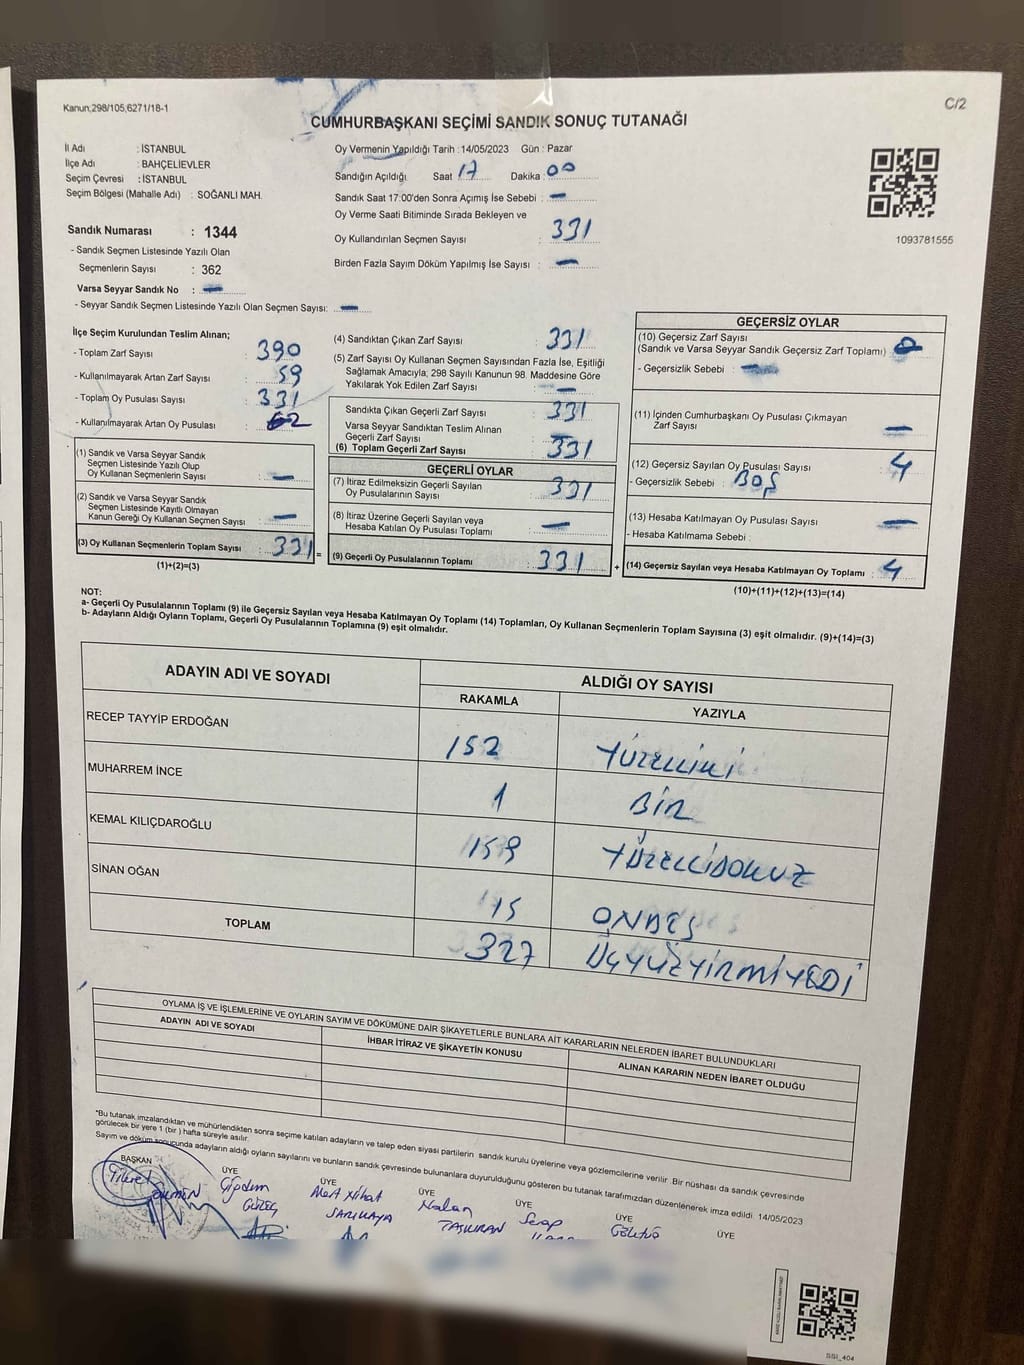 Kanun;298/105,6271/18-1
C/2
CUMHURBAŞKANI SEÇİMİ SANDIK SONUÇ TUTANAĞI
İl Adı : İSTANBUL
İlçe Adı : BAHÇELİEVLER
Seçim Çevresi : İSTANBUL
Seçim Bölgesi (Mahalle Adı) : SOĞANLI MAH.
Sandık Numarası : 1344
- Sandık Seçmen Listesinde Yazılı Olan
Seçmenlerin Sayısı : 362
Varsa Seyyar Sandık No : -
- Seyyar Sandık Seçmen Listesinde Yazılı Olan Seçmen Sayısı: -
Oy Vermenin Yapıldığı Tarih : 14/05/2023 Gün : Pazar
Sandığın Açıldığı Saat 17 Dakika : 00
Sandık Saat 17:00'den Sonra Açımış İse Sebebi : -
Oy Verme Saati Bitiminde Sırada Bekleyen ve
Oy Kullandırılan Seçmen Sayısı : 331
Birden Fazla Sayım Döküm Yapılmış İse Sayısı : -
1093781555
İlçe Seçim Kurulundan Teslim Alınan;
- Toplam Zarf Sayısı : 390
- Kullanılmayarak Artan Zarf Sayısı : 59
- Toplam Oy Pusulası Sayısı : 331
- Kullanılmayarak Artan Oy Pusulası : 62
(1) Sandık ve Varsa Seyyar Sandık
Seçmen Listesinde Yazılı Olup
Oy Kullanan Seçmenlerin Sayısı : -
(2) Sandık ve Varsa Seyyar Sandık
Seçmen Listesinde Kayıtlı Olmayan
Kanun Gereği Oy Kullanan Seçmen Sayısı : -
(3) Oy Kullanan Seçmenlerin Toplam Sayısı : 331 =
(1)+(2)=(3)
(4) Sandıktan Çıkan Zarf Sayısı : 331
(5) Zarf Sayısı Oy Kullanan Seçmen Sayısından Fazla İse, Eşitliği
Sağlamak Amacıyla; 298 Sayılı Kanunun 98. Maddesine Göre
Yakılarak Yok Edilen Zarf Sayısı : -
Sandıkta Çıkan Geçerli Zarf Sayısı : 331
Varsa Seyyar Sandıktan Teslim Alınan
Geçerli Zarf Sayısı :
(6) Toplam Geçerli Zarf Sayısı : 331
GEÇERLİ OYLAR
(7) İtiraz Edilmeksizin Geçerli Sayılan
Oy Pusulalarının Sayısı : 331
(8) İtiraz Üzerine Geçerli Sayılan veya
Hesaba Katılan Oy Pusulası Toplamı : -
(9) Geçerli Oy Pusulalarının Toplamı : 331 +
GEÇERSİZ OYLAR
(10) Geçersiz Zarf Sayısı
(Sandık ve Varsa Seyyar Sandık Geçersiz Zarf Toplamı) : 0
- Geçersizlik Sebebi : -
(11) İçinden Cumhurbaşkanı Oy Pusulası Çıkmayan
Zarf Sayısı -
(12) Geçersiz Sayılan Oy Pusulası Sayısı 4
- Geçersizlik Sebebi : BOŞ
(13) Hesaba Katılmayan Oy Pusulası Sayısı : -
- Hesaba Katılmama Sebebi :
(14) Geçersiz Sayılan veya Hesaba Katılmayan Oy Toplamı : 4
(10)+(11)+(12)+(13)=(14)
NOT:
a- Geçerli Oy Pusulalarının Toplamı (9) ile Geçersiz Sayılan veya Hesaba Katılmayan Oy Toplamı (14) Toplamları, Oy Kullanan Seçmenlerin Toplam Sayısına (3) eşit olmalıdır. (9)+(14)=(3)
b- Adayların Aldığı Oyların Toplamı, Geçerli Oy Pusulalarının Toplamına (9) eşit olmalıdır.
ADAYIN ADI VE SOYADI ALDIĞI OY SAYISI
RAKAMLA YAZIYLA
RECEP TAYYİP ERDOĞAN 152 YÜZELLİİKİ
MUHARREM İNCE 1 BİR
KEMAL KILIÇDAROĞLU 159 YÜZELLİDOKUZ
SİNAN OĞAN 15 ONBEŞ
TOPLAM 327 ÜÇYÜZYİRMİYEDİ
OYLAMA İŞ VE İŞLEMLERİNE VE OYLARIN SAYIM VE DÖKÜMÜNE DAİR ŞİKAYETLERLE BUNLARA AİT KARARLARIN NELERDEN İBARET BULUNDUKLARI
ADAYIN ADI VE SOYADI İHBAR İTİRAZ VE ŞİKAYETİN KONUSU ALINAN KARARIN NEDEN İBARET OLDUĞU
*Bu tutanak imzalandıktan ve mühürlendikten sonra seçime katılan adayların ve talep eden siyasi partilerin sandık kurulu üyelerine veya gözlemcilerine verilir. Bir nüshası da sandık çevresinde
görülecek bir yere 1 (bir ) hafta süreyle asılır.
Sayım ve döküm sonucunda adayların aldığı oyların sayılarını ve bunların sandık çevresinde bulunanlara duyurulduğunu gösteren bu tutanak tarafımızdan düzenlenerek imza edildi. 14/05/2023
BAŞKAN ÜYE ÜYE ÜYE ÜYE ÜYE ÜYE
Çiğdem Mert Nihat Nalan Serap
SARIKAYA TAŞKIRAN
SSI_404